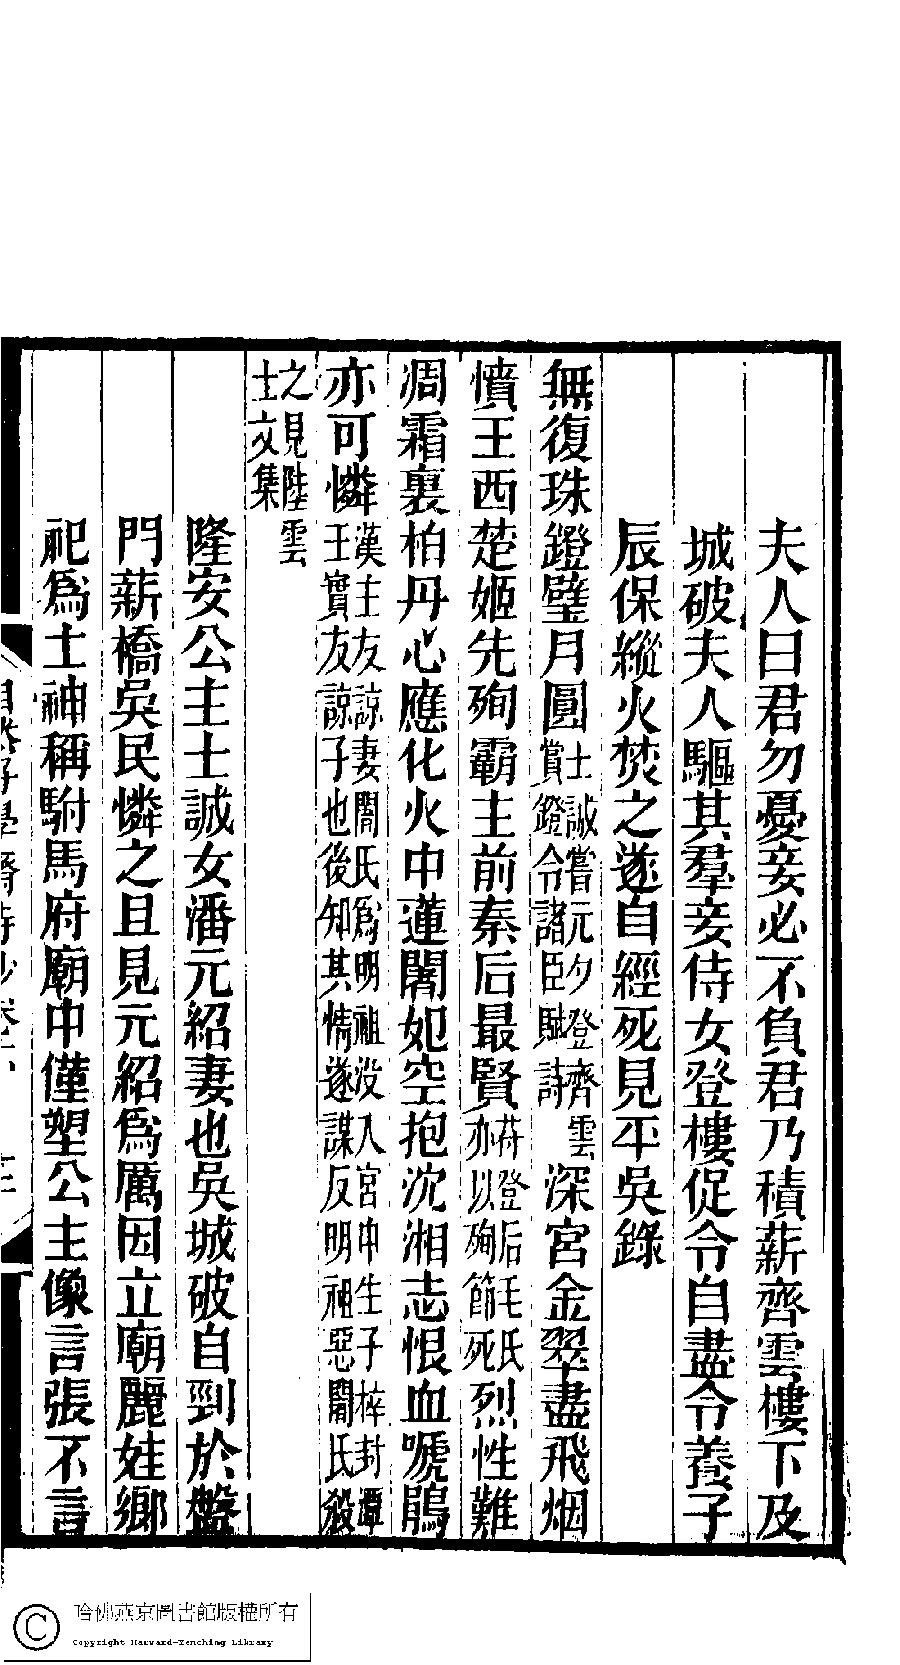 夫人曰君勿憂妾必不負君乃積薪齊雲樓下及
城破夫人驅其羣妾侍女登樓促令自盡令養子
辰保縱火焚之遂自經死見平吳錄
無復珠鐙璧月圓士誠嘗元夕登齊雲賞鐙令諸臣賦詩深宮金翠盡飛烟
憤王西楚姬先殉霸主前秦后最賢苻登后毛氏亦以殉節死烈性難
凋霜裏柏丹心應化火中蓮闍如空抱沈湘志恨血嗁鵑
亦可憐漢主友諒妻闍氏爲明祖没入宮中生子梓封潭王實友諒子也後知其情遂謀反明祖惡闍氏殺
之見陸雲士文集
隆安公主士誠女潘元紹妻也吳城破自剄於盤
門薪橋吳民憐之且見元紹爲厲因立廟麗娃鄉
祀爲土神稱駙馬府廟中僅塑公主像言張不言
哈佛燕京圖書館版權所有
Copyright Harvard-Yenching Library